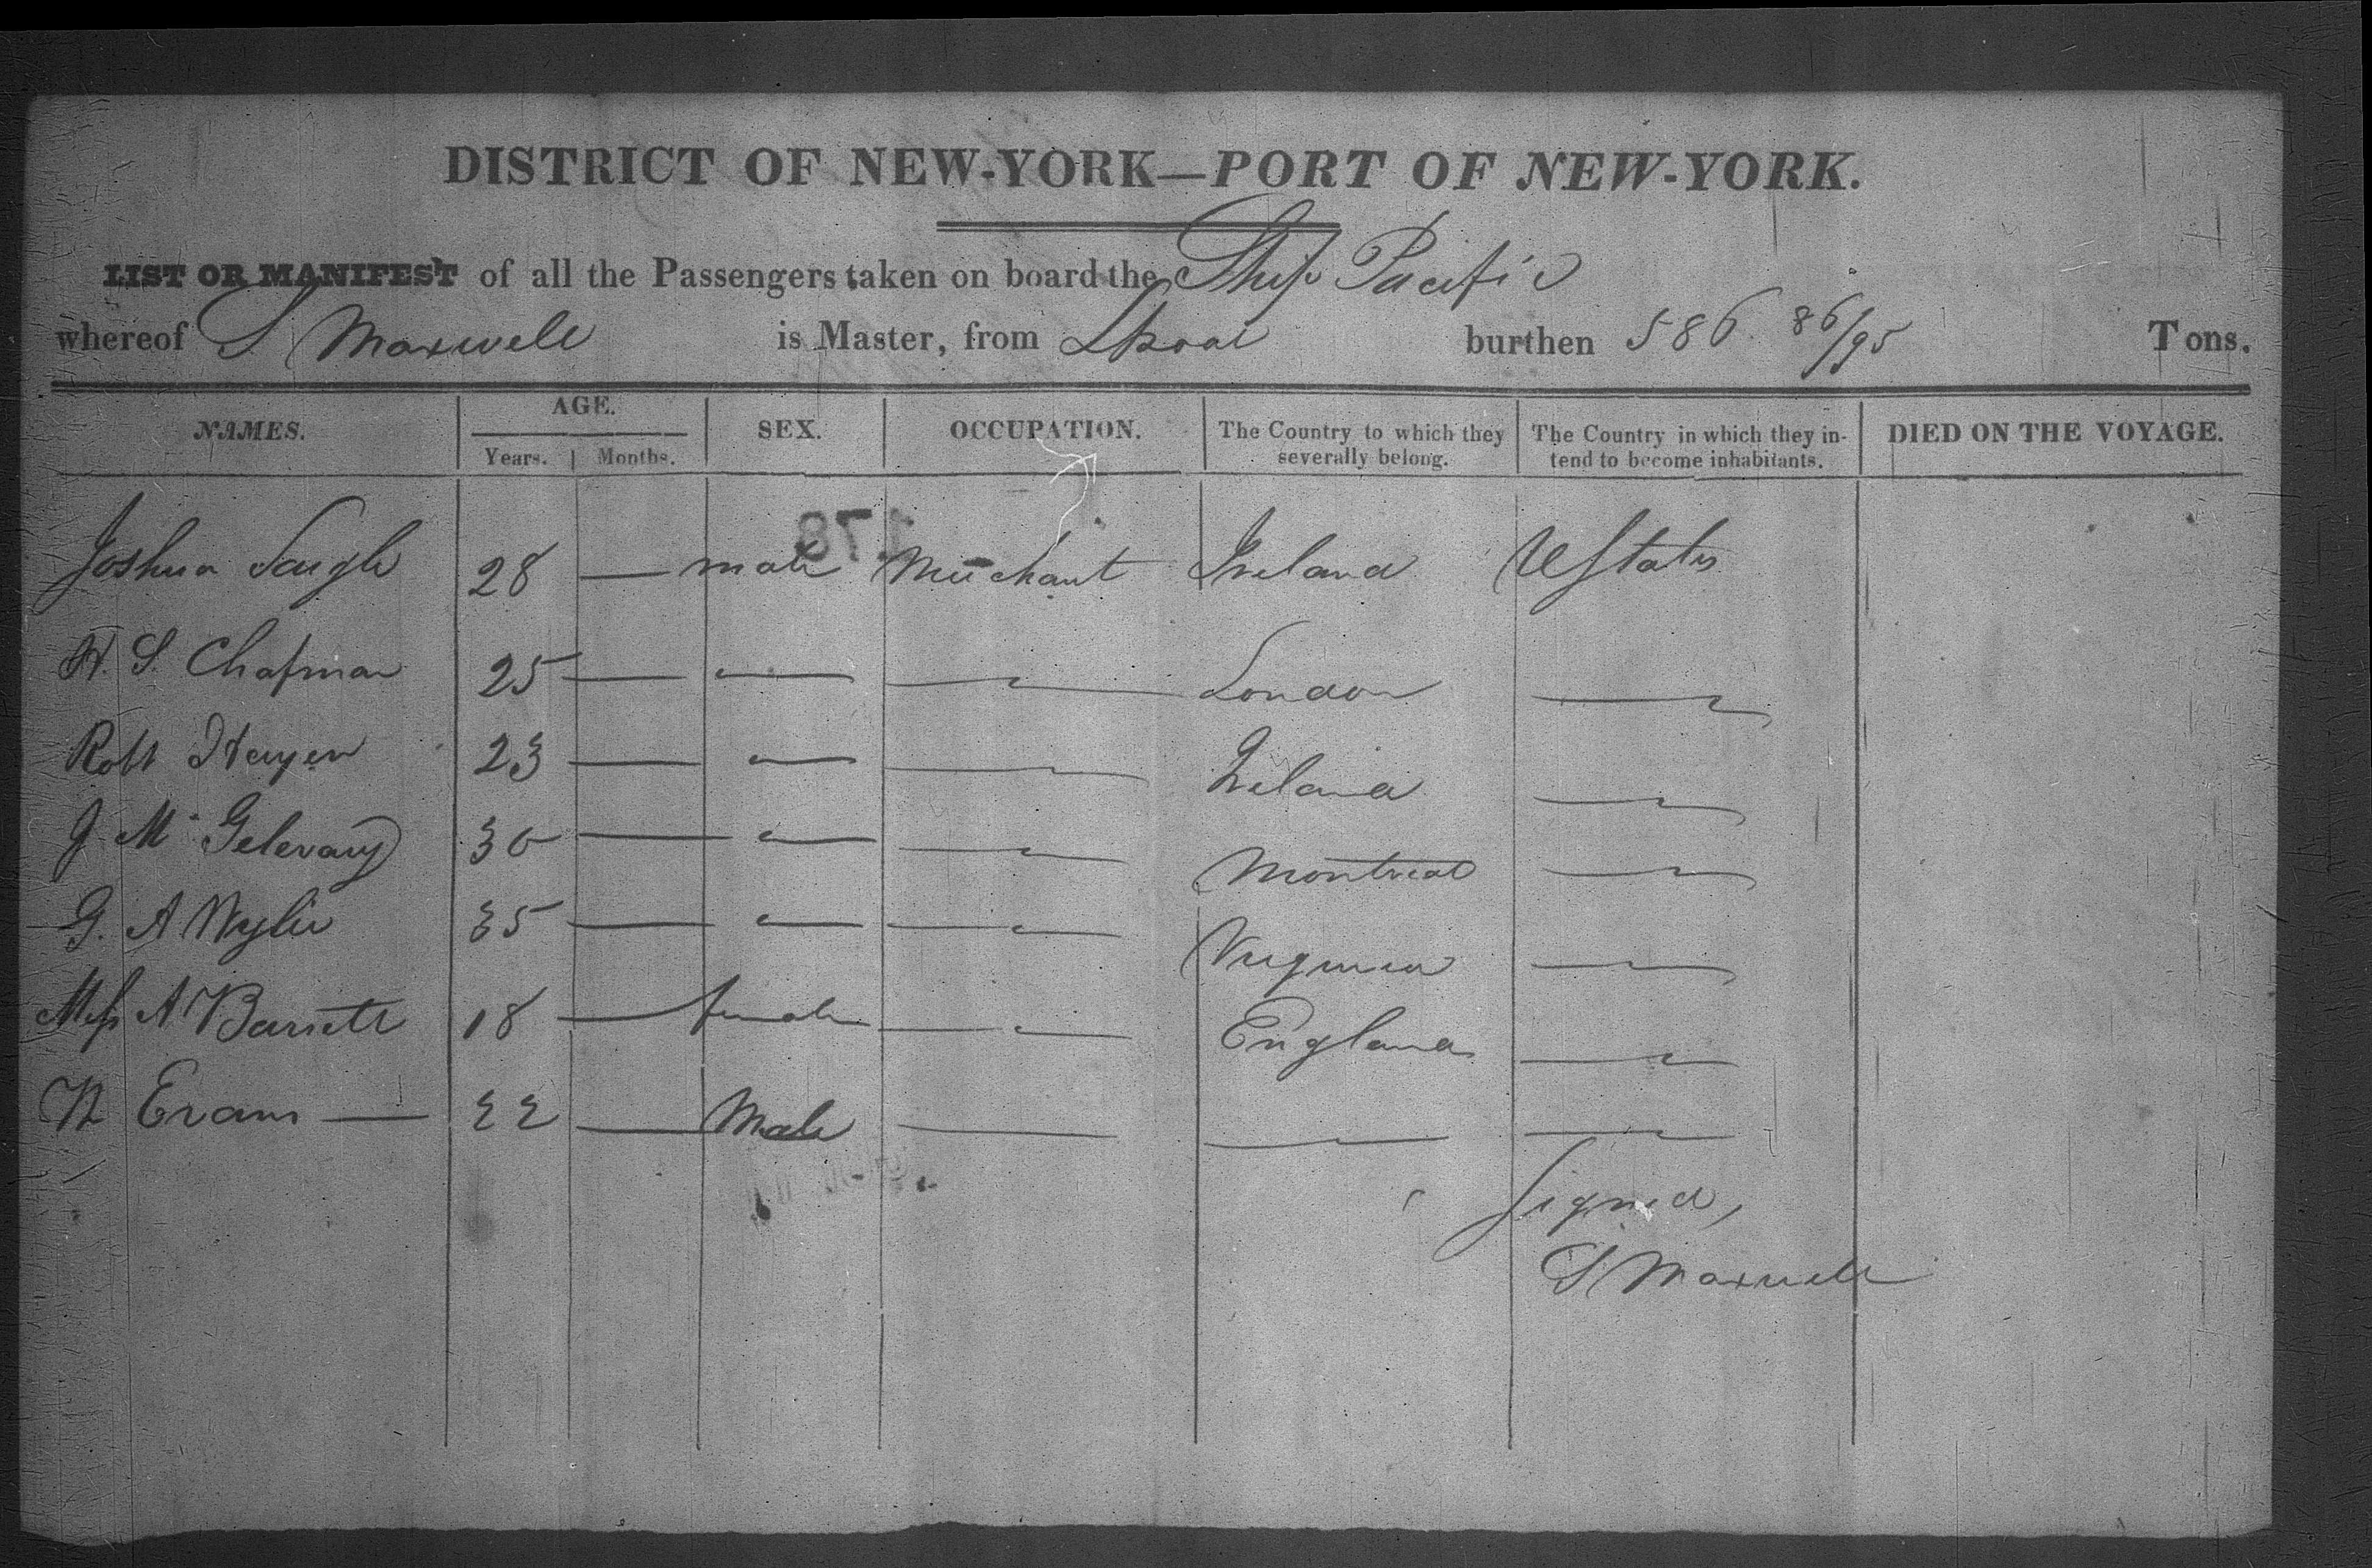 DISTRICT OF NEW-YORK—PORT OF NEW-YORK.
LIST OR MANIFEST of all the Passengers taken on board the Ship Pacific
whereof S Maxwell is Master, from Lpool burthen 586 86/95 Tons.
NAMES. AGE. SEX. OCCUPATION. The Country to which they severally belong. The Country in which they intend to become inhabitants. DIED ON THE VOYAGE.
Years. Months.
Joshua 28 — male Merchant Ireland UStates
H. S. Chapman 25 — — — London —
Robt 23 — — — Ireland —
J Mc 30 — — — Montreal —
G. A Wylie 35 — — — Virginia —
Miss A Barrett 18 — female — England —
W Evans — 22 — Male — — —
Signed,
S Maxwell